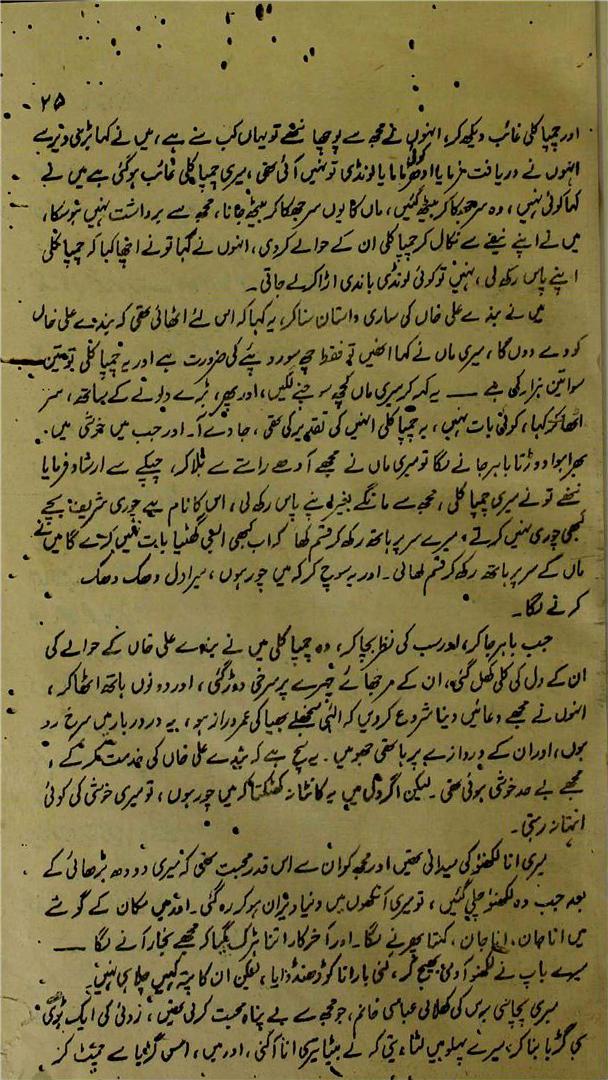 ۲۵
اور چمپا کلی غائب دیکھ کر، انہوں نے مجھ سے پوچھا ننھے تو یہاں کب سے ہے، میں نے کہا بڑی دیر سے
انہوں نے دریافت فرمایا اور کوئی ماما یا لونڈی تو نہیں آئی تھی، میری چمپا کلی غائب ہو گئی ہے میں نے
کہا کوئی نہیں، وہ سر جھکا کر بیٹھ گئیں، ماں کا یوں سر جھکا کر بیٹھ جانا، مجھ سے برداشت نہیں ہو سکا،
میں نے اپنے نیفے سے نکال کر چمپا کلی ان کے حوالے کر دی، انہوں نے کہا تو نے اچھا کیا کہ چمپا کلی
اپنے پاس رکھ لی، نہیں تو کوئی لونڈی باندی اڑا کر لے جاتی۔
میں نے بندے علی خاں کی ساری داستان سنا کر، یہ کہا کہ اس لئے اٹھائی تھی کہ بندے علی خاں
کو دے دوں گا، میری ماں نے کہا انھیں تو فقط چھ سو روپئے کی ضرورت ہے اور یہ چمپا کلی تو تین
سوا تین ہزار کی ہے — یہ کہہ کر میری ماں کچھ سوچنے لگیں، اور پھر، بڑے ولولے کے ساتھ، سر
اٹھا کر کہا، کوئی بات نہیں، یہ چمپا کلی انہیں کی تقدیر کی تھی، جا دے آ۔ اور جب میں خوشی میں
بھرا ہوا دوڑتا باہر جانے لگا تو میری ماں نے مجھے آدھے راستے سے بلا کر، چپکے سے ارشاد فرمایا
ننھے تو نے میری چمپا کلی، مجھ سے مانگے بغیر اپنے پاس رکھ لی، اس کا نام ہے چوری شریف بچے
کبھی چوری نہیں کرتے، میرے سر پر ہاتھ رکھ کر قسم کھا کہ اب کبھی ایسی گھٹیا بات نہیں کرے گا میں نے
ماں کے سر پر ہاتھ رکھ کر قسم کھالی۔ اور یہ سوچ کر کہ میں چور ہوں، میرا دل دھک دھک
کرنے لگا۔
جب باہر جا کر، اور سب کی نظر بچا کر، وہ چمپا کلی میں نے بندے علی خاں کے حوالے کی
ان کے دل کی کلی کھل گئی، ان کے مرجھائے چہرے پر سرخی دوڑ گئی، اور دونوں ہاتھ اٹھا کر،
انہوں نے مجھے دعائیں دینا شروع کر دیں کہ الٰہی منجھلے بھیا کی عمر دراز ہو، یہ در دربار میں سرخ رو
ہوں، اور ان کے دروازے پر ہاتھی جھومیں۔ یہ سچ ہے کہ بندے علی خاں کی خدمت کر کے،
مجھے بے حد خوشی ہوئی تھی۔ لیکن اگر دل میں یہ کانٹا نہ کھٹکتا کہ میں چور ہوں، تو میری خوشی کی کوئی
انتہا نہ رہتی۔
میری انا لکھنؤ کی سیدانی تھیں اور مجھ کو ان سے اس قدر محبت تھی کہ میری دودھ بڑھائی کے
بعد جب وہ لکھنؤ چلی گئیں، تو میری آنکھوں میں دنیا ویران ہو کر رہ گئی۔ اور میں مکان کے گوشے
میں انا جان، انا جان، کہتا پھرنے لگا۔ اور آخر کار اتنا ہڑک گیا کہ مجھے بخار آنے لگا —
میرے باپ نے لکھنؤ آدمی بھیج کر، کئی بار انا کو ڈھنڈوایا، لیکن ان کا پتہ کہیں چلا ہی نہیں۔
میری پچاسی برس کی کھلائی عباسی خانم، جو مجھ سے بے پناہ محبت کرتی تھیں، روئی کی ایک بڑی
سی گڑیا بنا کر، میرے پہلو میں لٹا دیتی کہ لے بیٹا تیری انا آ گئی، اور میں، اس گڑیا سے چمٹ کر